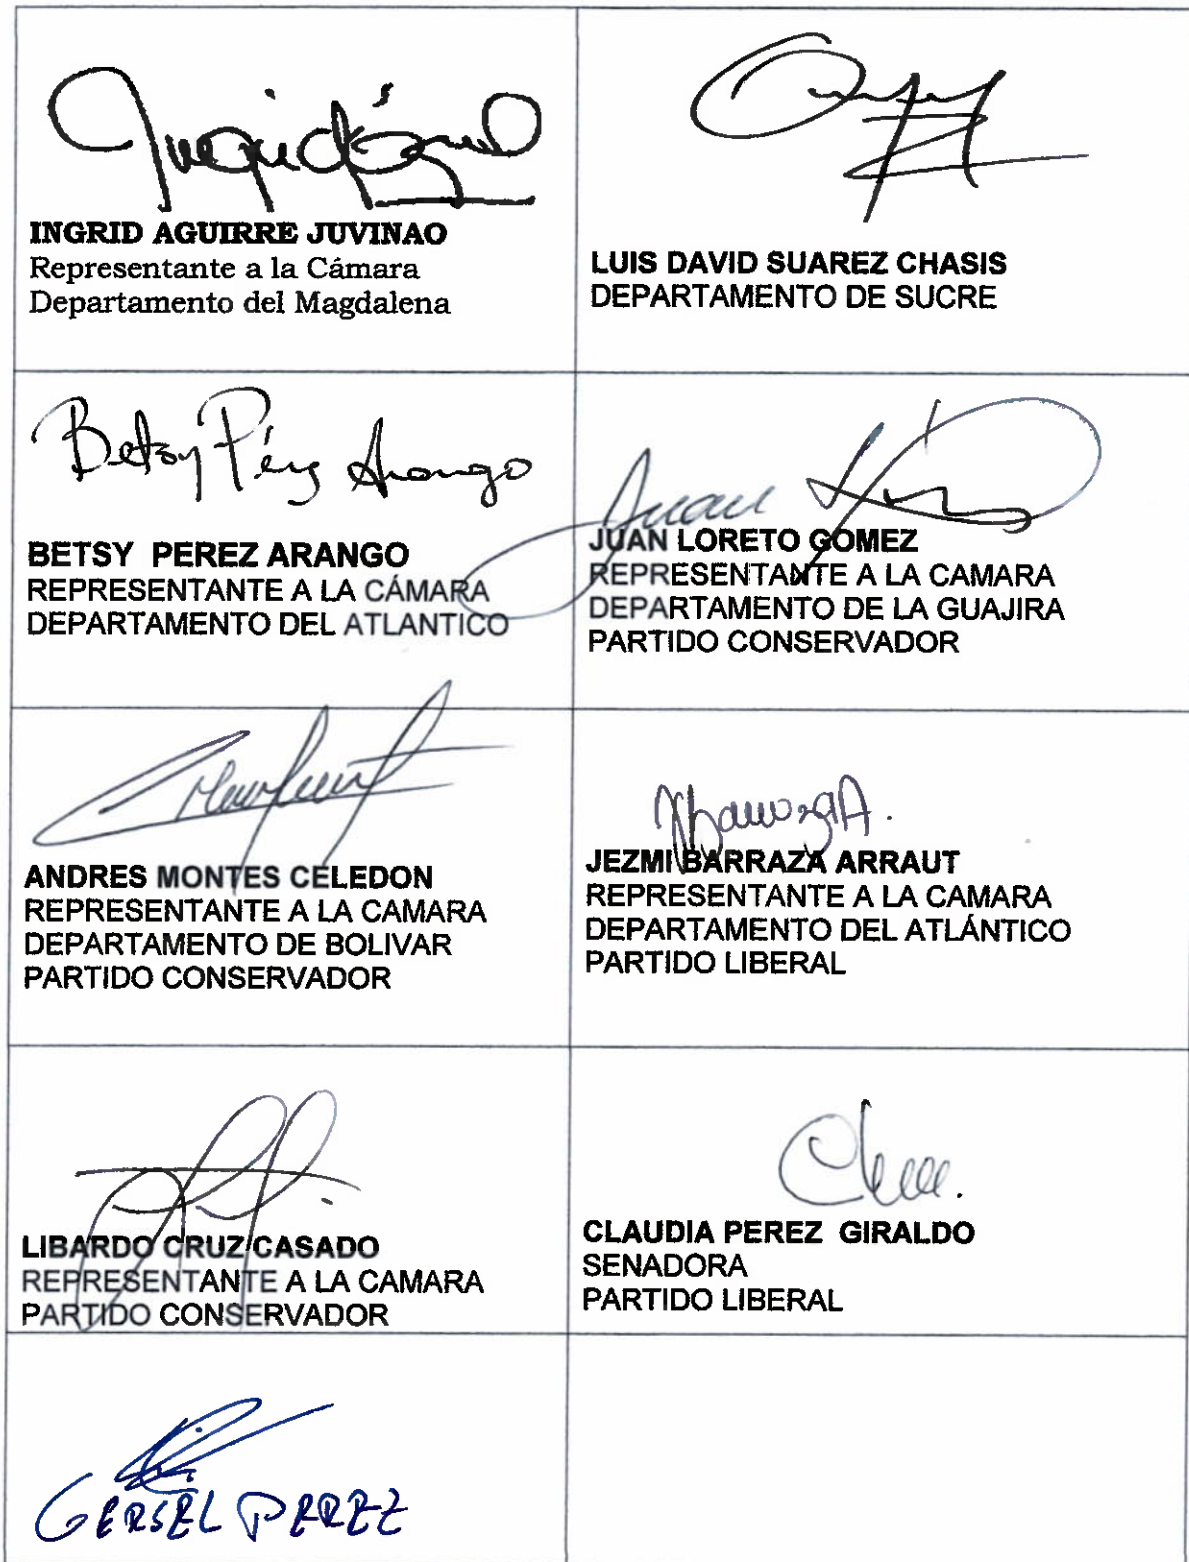 Ingrid Aguirre
INGRID AGUIRRE JUVINAO
Representante a la Cámara
Departamento del Magdalena
LUIS DAVID SUAREZ CHASIS
DEPARTAMENTO DE SUCRE
Betsy Pérez Arango
BETSY PEREZ ARANGO
REPRESENTANTE A LA CÁMARA
DEPARTAMENTO DEL ATLANTICO
Juan
JUAN LORETO GOMEZ
REPRESENTANTE A LA CAMARA
DEPARTAMENTO DE LA GUAJIRA
PARTIDO CONSERVADOR
ANDRES MONTES CELEDON
REPRESENTANTE A LA CAMARA
DEPARTAMENTO DE BOLIVAR
PARTIDO CONSERVADOR
JEZMI BARRAZA ARRAUT
REPRESENTANTE A LA CAMARA
DEPARTAMENTO DEL ATLÁNTICO
PARTIDO LIBERAL
LIBARDO CRUZ CASADO
REPRESENTANTE A LA CAMARA
PARTIDO CONSERVADOR
CLAUDIA PEREZ GIRALDO
SENADORA
PARTIDO LIBERAL
GERSEL PEREZ